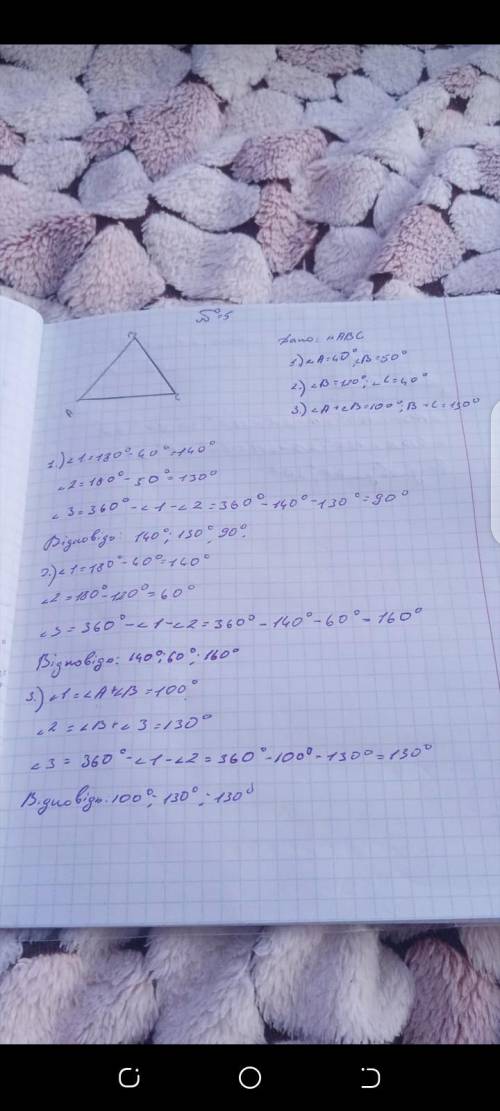 №5
B
A
C
Дано: △ABC
1) ∠A=40°; ∠B=50°
2.) ∠B=120°; ∠C=40°
3) ∠A+∠B=100°; B+C=130°
1.) ∠1=180°-40°=140°
∠2=180°-50°=130°
∠3=360°-∠1-∠2=360°-140°-130°=90°
Відповідь: 140°; 130°; 90°.
2.) ∠1=180°-40°=140°
∠2=180°-120°=60°
∠3=360°-∠1-∠2=360°-140°-60°=160°
Відповідь: 140°; 60°; 160°
3.) ∠1=∠A+∠B=100°
∠2=∠B+∠3=130°
∠3=360°-∠1-∠2=360°-100°-130°=130°
Відповідь: 100°; 130°; 130°